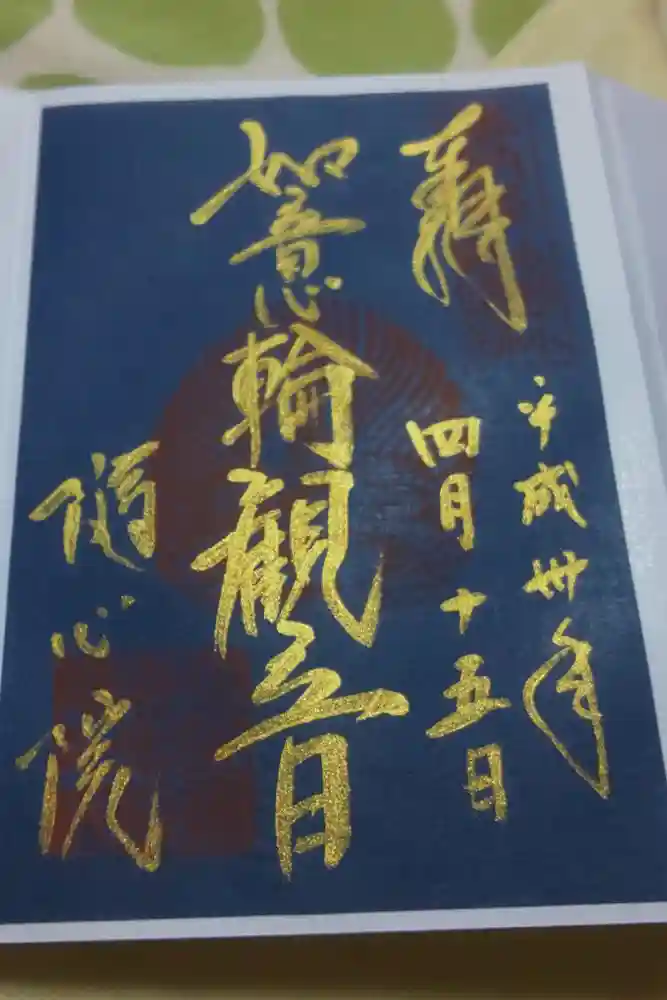 奉拝
平成卅年
四月十五日
如意輪観音
隨心院